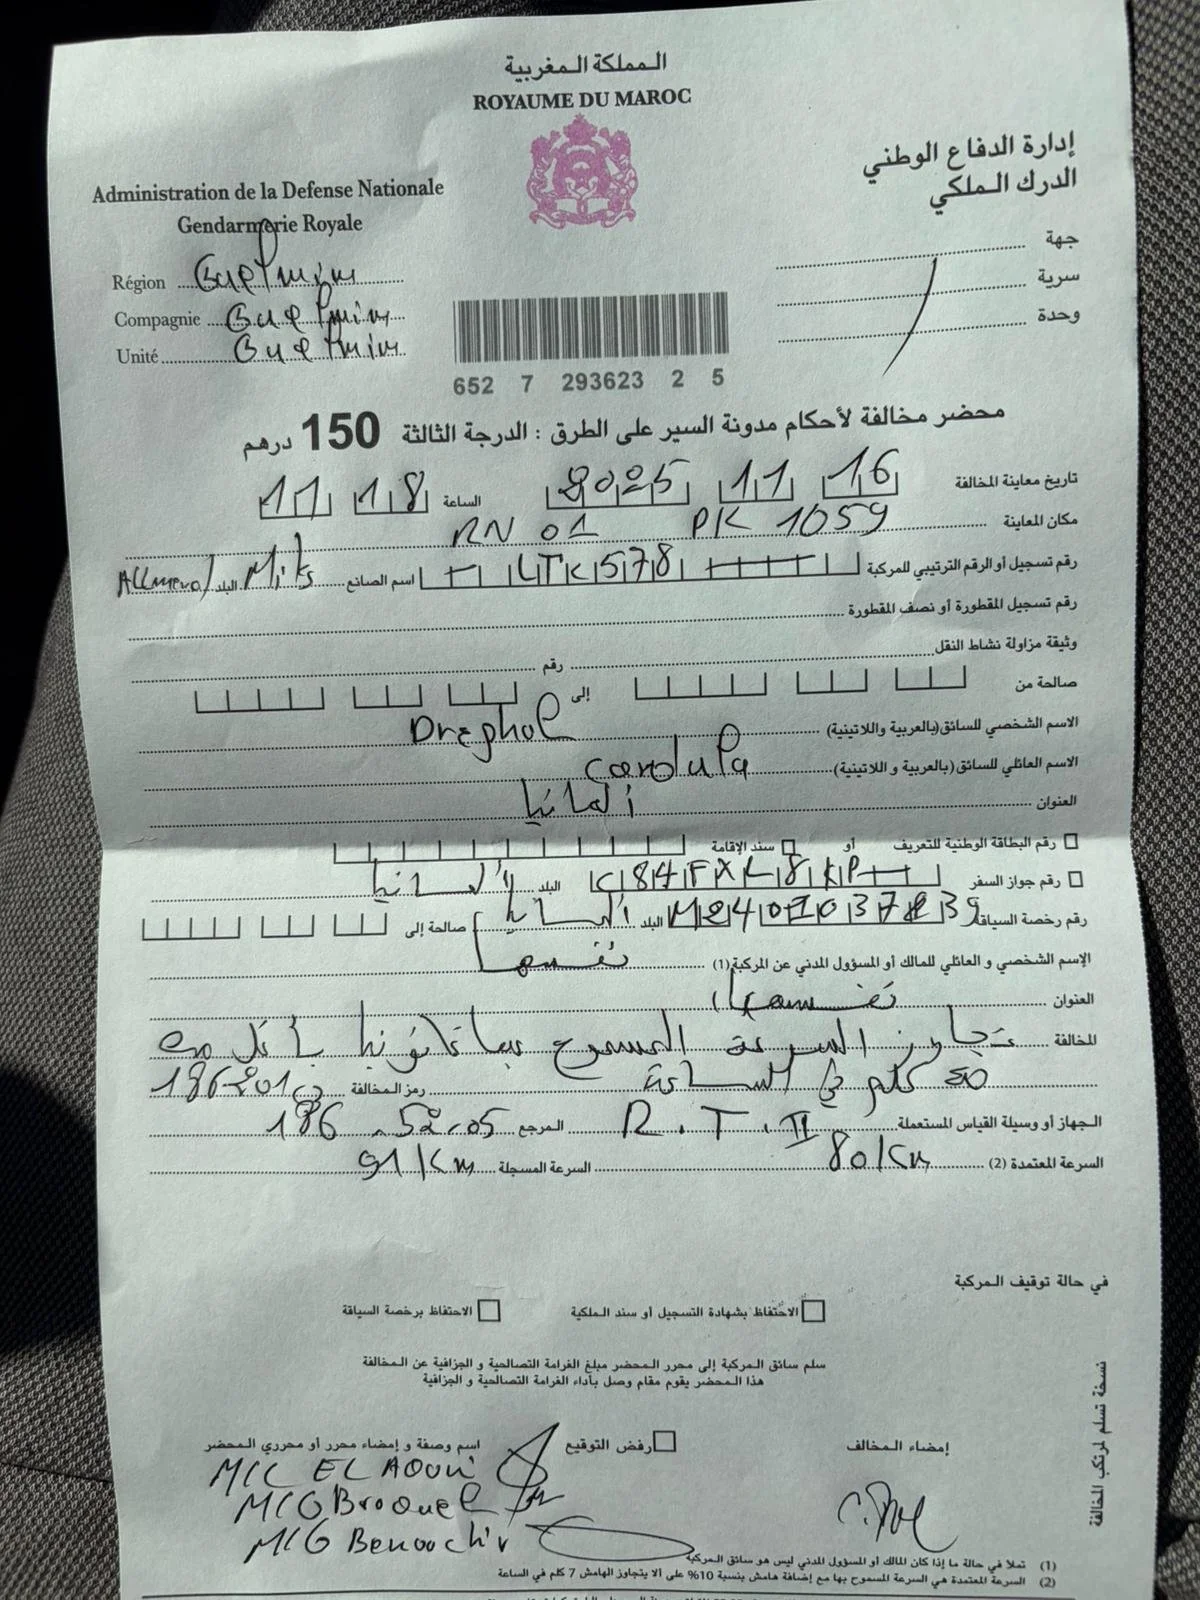 المملكة المغربية
ROYAUME DU MAROC
إدارة الدفاع الوطني
الدرك الملكي
Administration de la Defense Nationale
Gendarmerie Royale
جهة
سرية
وحدة
Région Guelmim
Compagnie Guelmim
Unité Guelmim
652 7 293623 2 5
محضر مخالفة لأحكام مدونة السير على الطرق : الدرجة الثالثة 150 درهم
تاريخ معاينة المخالفة 16 11 2025 الساعة 18 11
مكان المعاينة RN 01 PK 1059
رقم تسجيل أو الرقم الترتيبي للمركبة LTK578 اسم الصانع Mits البلد
رقم تسجيل المقطورة أو نصف المقطورة
وثيقة مزاولة نشاط النقل رقم
صالحة من إلى
الاسم الشخصي للسائق (بالعربية واللاتينية) Drephol
الاسم العائلي للسائق (بالعربية و اللاتينية) cordula
العنوان ألمانيا
رقم البطاقة الوطنية للتعريف أو سند الإقامة
رقم جواز السفر C84FXL8KP البلد ألمانيا
رقم رخصة السياقة البلد ألمانيا صالحة إلى
الإسم الشخصي و العائلي للمالك أو المسؤول المدني عن المركبة (1) نفسها
العنوان نفسها
المخالفة تجاوز السرعة المسموح بها قانونيا بأقل من
كلم في الساعة رمز المخالفة
الجهاز أو وسيلة القياس المستعملة R.T.II المرجع 186.52.05
السرعة المعتمدة (2) 80/Km السرعة المسجلة 91/Km
في حالة توقيف المركبة
الاحتفاظ بشهادة التسجيل أو سند الملكية الاحتفاظ برخصة السياقة
سلم سائق المركبة إلى محرر المحضر مبلغ الغرامة التصالحية و الجزافية عن المخالفة
هذا المحضر يقوم مقام وصل بأداء الغرامة التصالحية و الجزافية
نسخة تسلم لمرتكب المخالفة
إمضاء المخالف رفض التوقيع اسم وصفة و إمضاء محرر أو محرري المحضر
MCL EL AOUNI
MCG Broquel
MCG
(1) تملأ في حالة ما إذا كان المالك أو المسؤول المدني ليس هو سائق المركبة
(2) السرعة المعتمدة هي السرعة المسموح بها مع إضافة هامش بنسبة 10% على ألا يتجاوز الهامش 7 كلم في الساعة